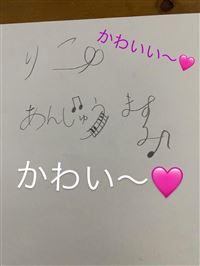 りこ
かわいい〜🩷
あんじゅう
ますみ
かわい〜🩷